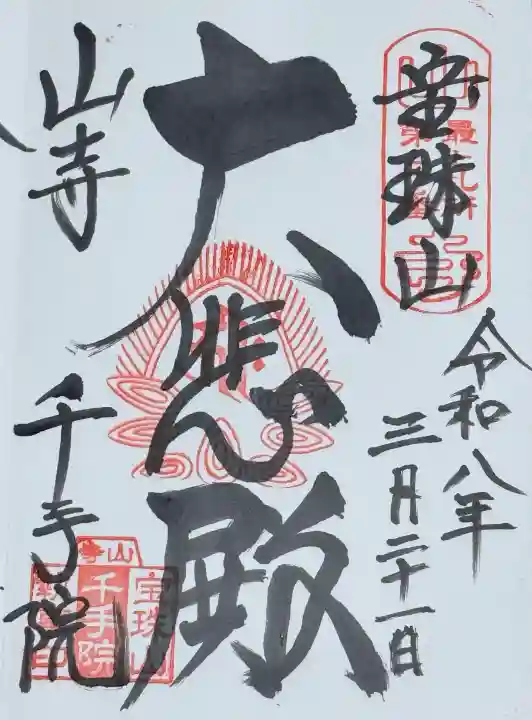 宝珠山
令和八年
三月二十一日
大悲殿
山寺
千手院
山寺
宝珠山
千手院